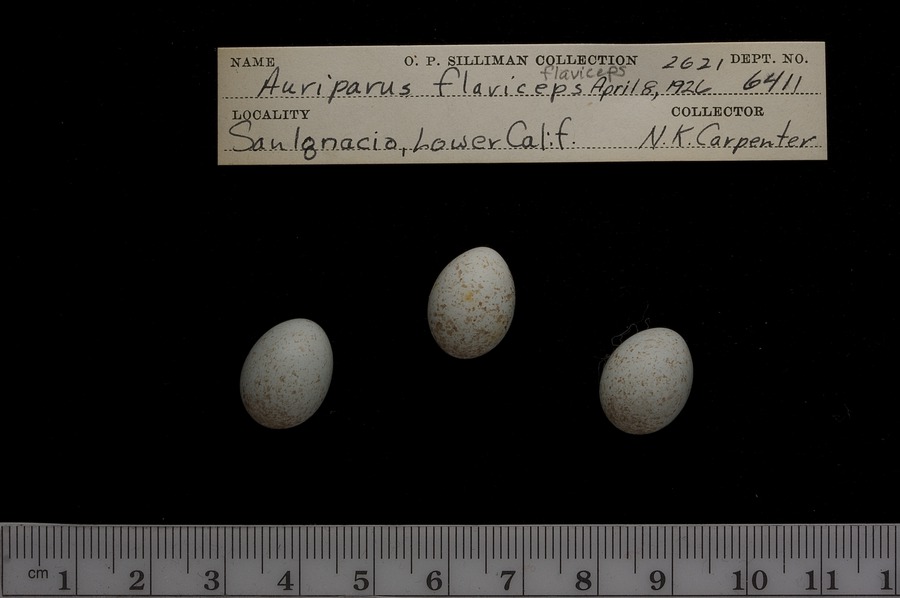 NAME O. P. SILLIMAN COLLECTION 2621 DEPT. NO.
flaviceps
Auriparus flaviceps April 8, 1926 6411
LOCALITY COLLECTOR
San Ignacio, Lower Calif. N.K. Carpenter
cm 1 2 3 4 5 6 7 8 9 10 11 1